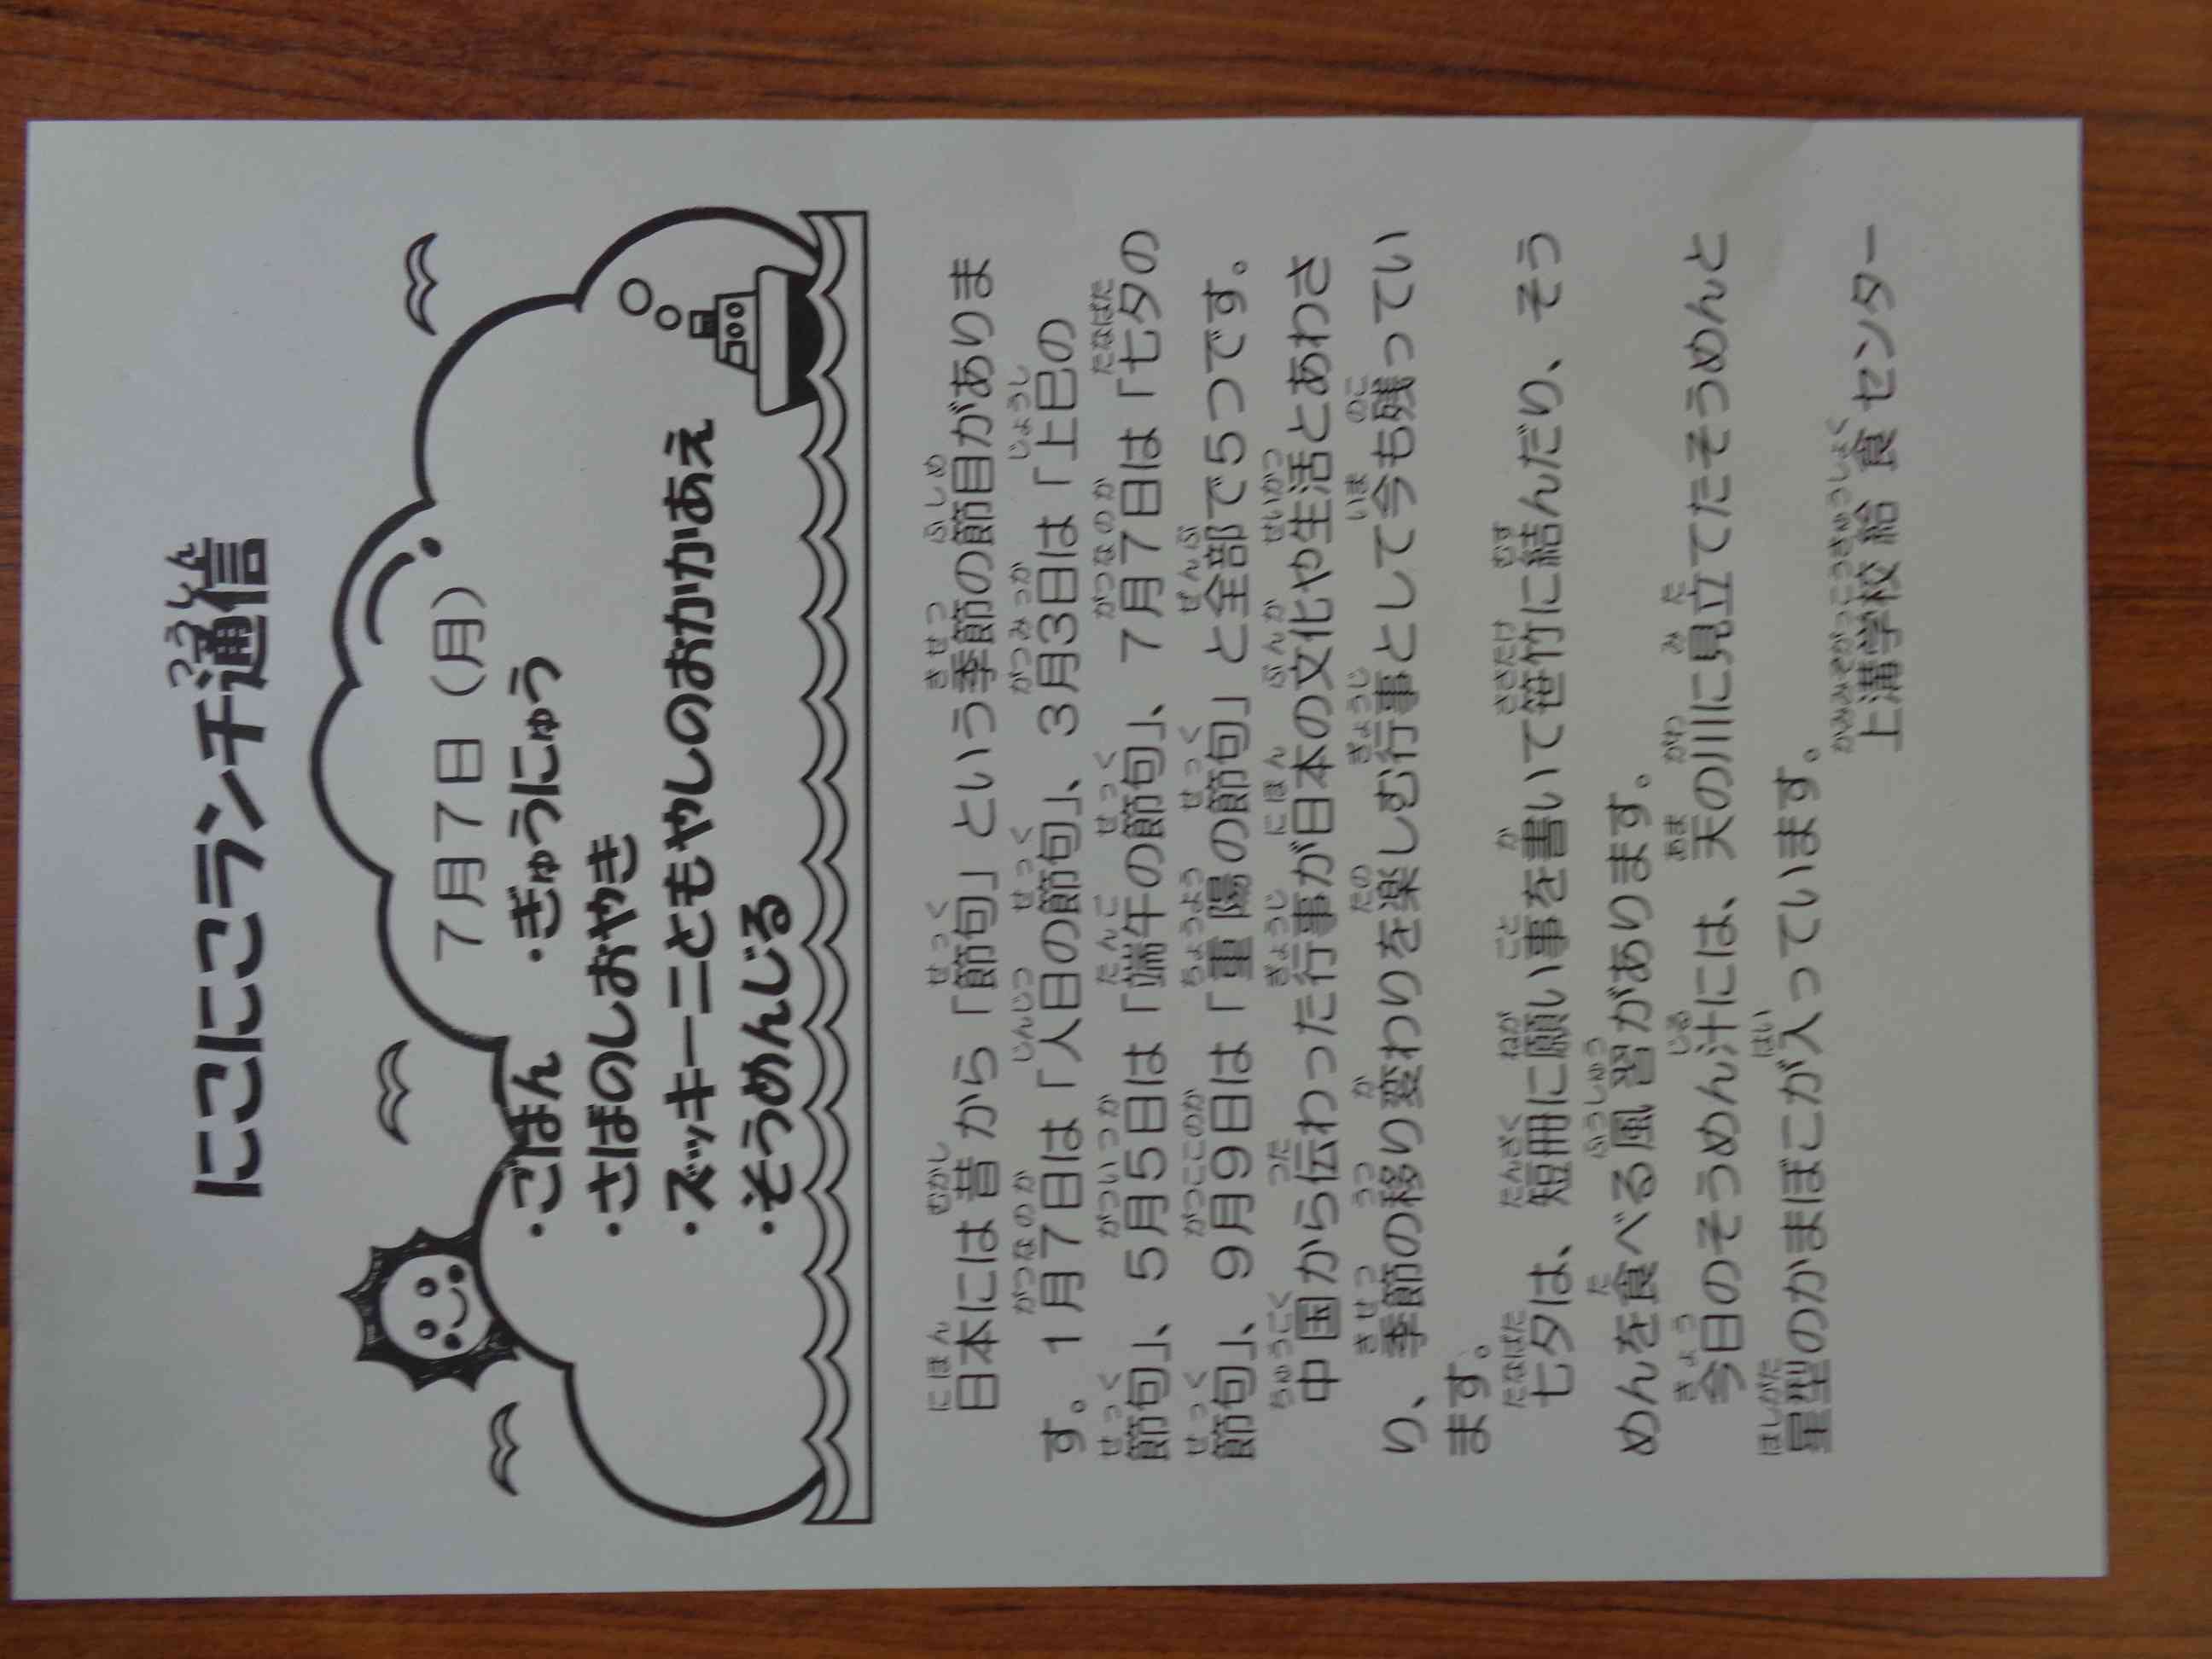 にこにこランチ通信
7月7日（月）
・ごはん ・ぎゅうにゅう
・さばのしおやき
・ズッキーニともやしのおかかあえ
・そうめんじる
日本には昔から「節句」という季節の節目がありま
す。1月7日は「人日の節句」、3月3日は「上巳の
節句」、5月5日は「端午の節句」、7月7日は「七夕の
節句」、9月9日は「重陽の節句」と全部で5つです。
中国から伝わった行事が日本の文化や生活とあわさ
り、季節の移り変わりを楽しむ行事として今も残ってい
ます。
七夕は、短冊に願い事を書いて笹竹に結んだり、そう
めんを食べる風習があります。
今日のそうめん汁には、天の川に見立てたそうめんと
星型のかまぼこが入っています。
上溝学校給食センター